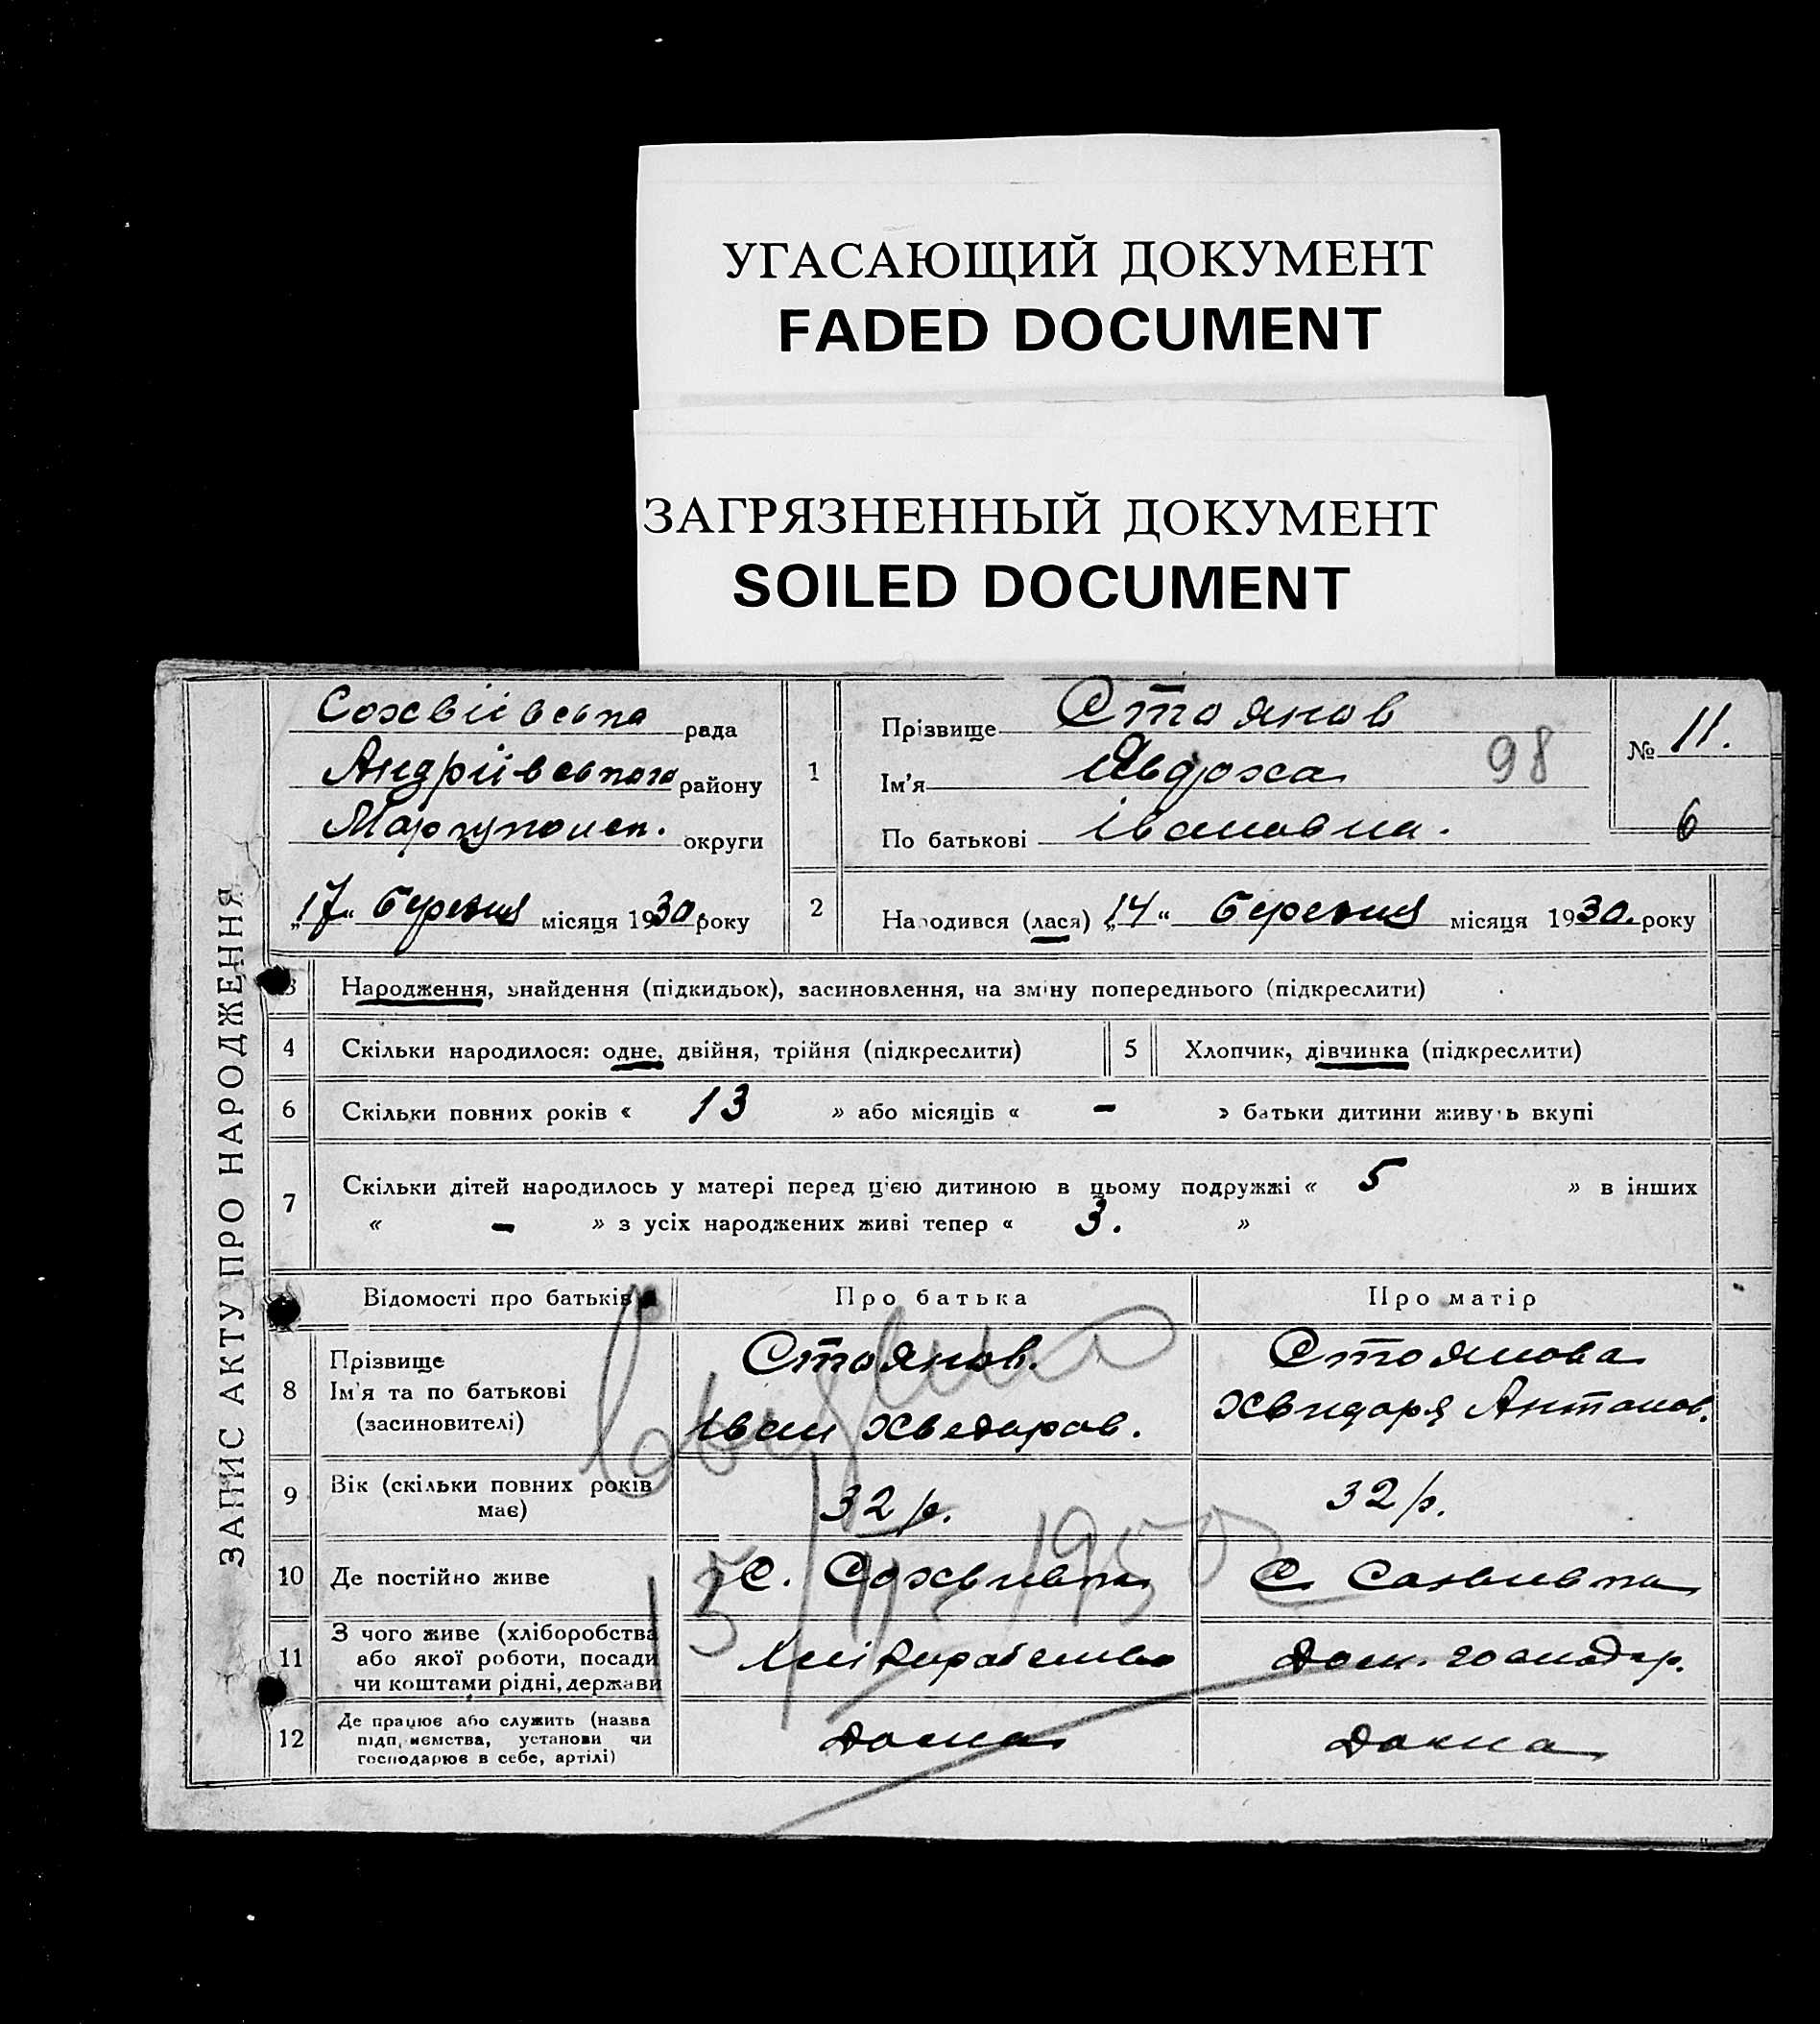 УГАСАЮЩИЙ ДОКУМЕНТ
FADED DOCUMENT
ЗАГРЯЗНЕННЫЙ ДОКУМЕНТ
SOILED DOCUMENT
ЗАПИС АКТУ ПРО НАРОДЖЕННЯ
Сохвіївська рада
Андріївського району
Маріупольск. округи
„17“ березня місяця 1930 року
1
Прізвище Стоянов
Ім'я Явдоха 98
По батькові Івановна.
№ 11.
6
2 Народився (лася) „14“ березня місяця 1930. року
3 Народження, знайдення (підкидьок), засиновлення, на зміну попереднього (підкреслити)
4 Скільки народилося: одне, двійня, трійня (підкреслити) 5 Хлопчик, дівчинка (підкреслити)
6 Скільки повних років « 13 » або місяців « – » батьки дитини живуть вкупі
7 Скільки дітей народилось у матері перед цією дитиною в цьому подружжі « 5 » в інших
« – » з усіх народжених живі тепер « 3. »
Відомості про батьків Про батька Про матір
8 Прізвище Ім'я та по батькові (засиновителі)
Стоянов. Стоянова
Іван Хведоров. Хвидоря Антонов.
9 Вік (скільки повних років має) 32 р. 32 р.
10 Де постійно живе С. Сохвиевка С. Сохвиевка
15/ 1950
11 З чого живе (хліборобства
або якої роботи, посади
чи коштами рідні, держави
Хліборобство Дом. господар.
12 Де працює або служить (назва
підприємства, установи чи
господарює в себе, артілі)
Дома Дома